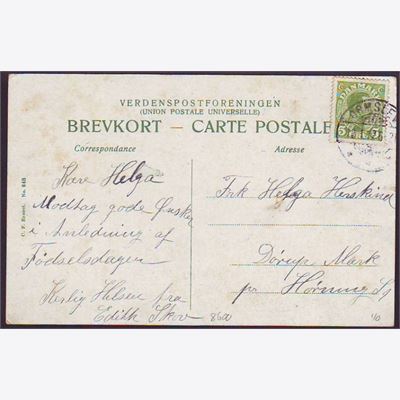 VERDENSPOSTFORENINGEN
(UNION POSTALE UNIVERSELLE)
BREVKORT — CARTE POSTALE
Correspondance
Adresse
DANMARK
5 5
Kære Helga
Modtag gode Ønsker
i Anledning af
Fødselsdagen
Kærlig Hilsen fra
Edith Skov
Frk Helga Herskind
Dørup Mark
pr Hørning St
8600